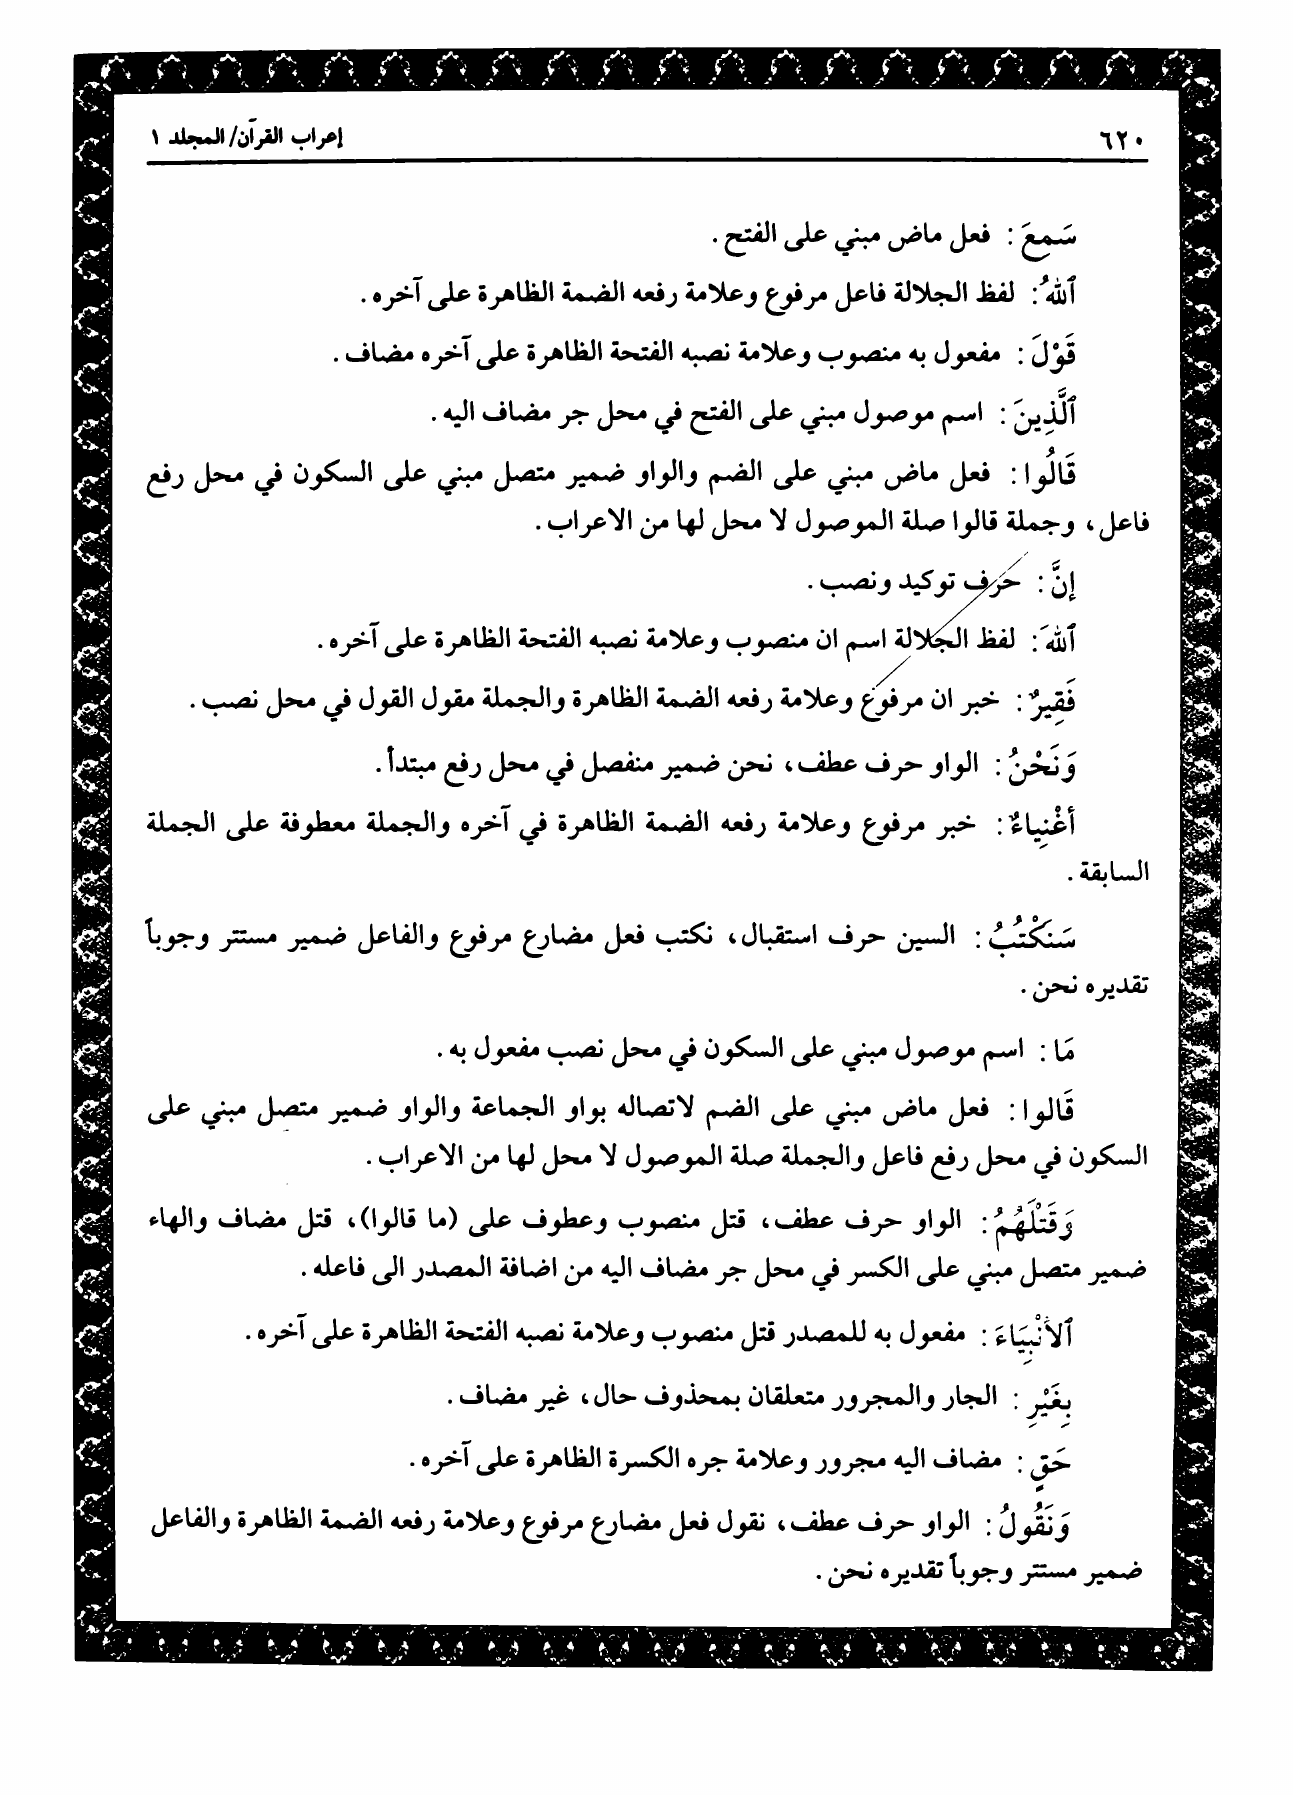 ٦٢٠
إعراب القرآن/ المجلد ١
سَمِعَ : فعل ماض مبني على الفتح .
ٱللهُ : لفظ الجلالة فاعل مرفوع وعلامة رفعه الضمة الظاهرة على آخره .
قَوْلَ : مفعول به منصوب وعلامة نصبه الفتحة الظاهرة على آخره مضاف .
ٱلَّذِينَ : اسم موصول مبني على الفتح في محل جر مضاف اليه .
قَالُوا : فعل ماض مبني على الضم والواو ضمير متصل مبني على السكون في محل رفع
فاعل ، وجملة قالوا صلة الموصول لا محل لها من الاعراب .
إنَّ : حرف توكيد ونصب .
ٱللهَ : لفظ الجلالة اسم ان منصوب وعلامة نصبه الفتحة الظاهرة على آخره .
فَقِيرٌ : خبر ان مرفوع وعلامة رفعه الضمة الظاهرة والجملة مقول القول في محل نصب .
وَنَحْنُ : الواو حرف عطف ، نحن ضمير منفصل في محل رفع مبتدأ .
أغْنِياءٌ : خبر مرفوع وعلامة رفعه الضمة الظاهرة في آخره والجملة معطوفة على الجملة
السابقة .
سَنَكْتُبُ : السين حرف استقبال ، نكتب فعل مضارع مرفوع والفاعل ضمير مستتر وجوباً
تقديره نحن .
مَا : اسم موصول مبني على السكون في محل نصب مفعول به .
قَالوا : فعل ماض مبني على الضم لاتصاله بواو الجماعة والواو ضمير متصل مبني على
السكون في محل رفع فاعل والجملة صلة الموصول لا محل لها من الاعراب .
وَقَتْلَهُمُ : الواو حرف عطف ، قتل منصوب وعطوف على (ما قالوا) ، قتل مضاف والهاء
ضمير متصل مبني على الكسر في محل جر مضاف اليه من اضافة المصدر الى فاعله .
ٱلأنْبِيَاءَ : مفعول به للمصدر قتل منصوب وعلامة نصبه الفتحة الظاهرة على آخره .
بِغَيْرِ : الجار والمجرور متعلقان بمحذوف حال ، غير مضاف .
حَقٍ : مضاف اليه مجرور وعلامة جره الكسرة الظاهرة على آخره .
وَنَقُولُ : الواو حرف عطف ، نقول فعل مضارع مرفوع وعلامة رفعه الضمة الظاهرة والفاعل
ضمير مستتر وجوباً تقديره نحن .